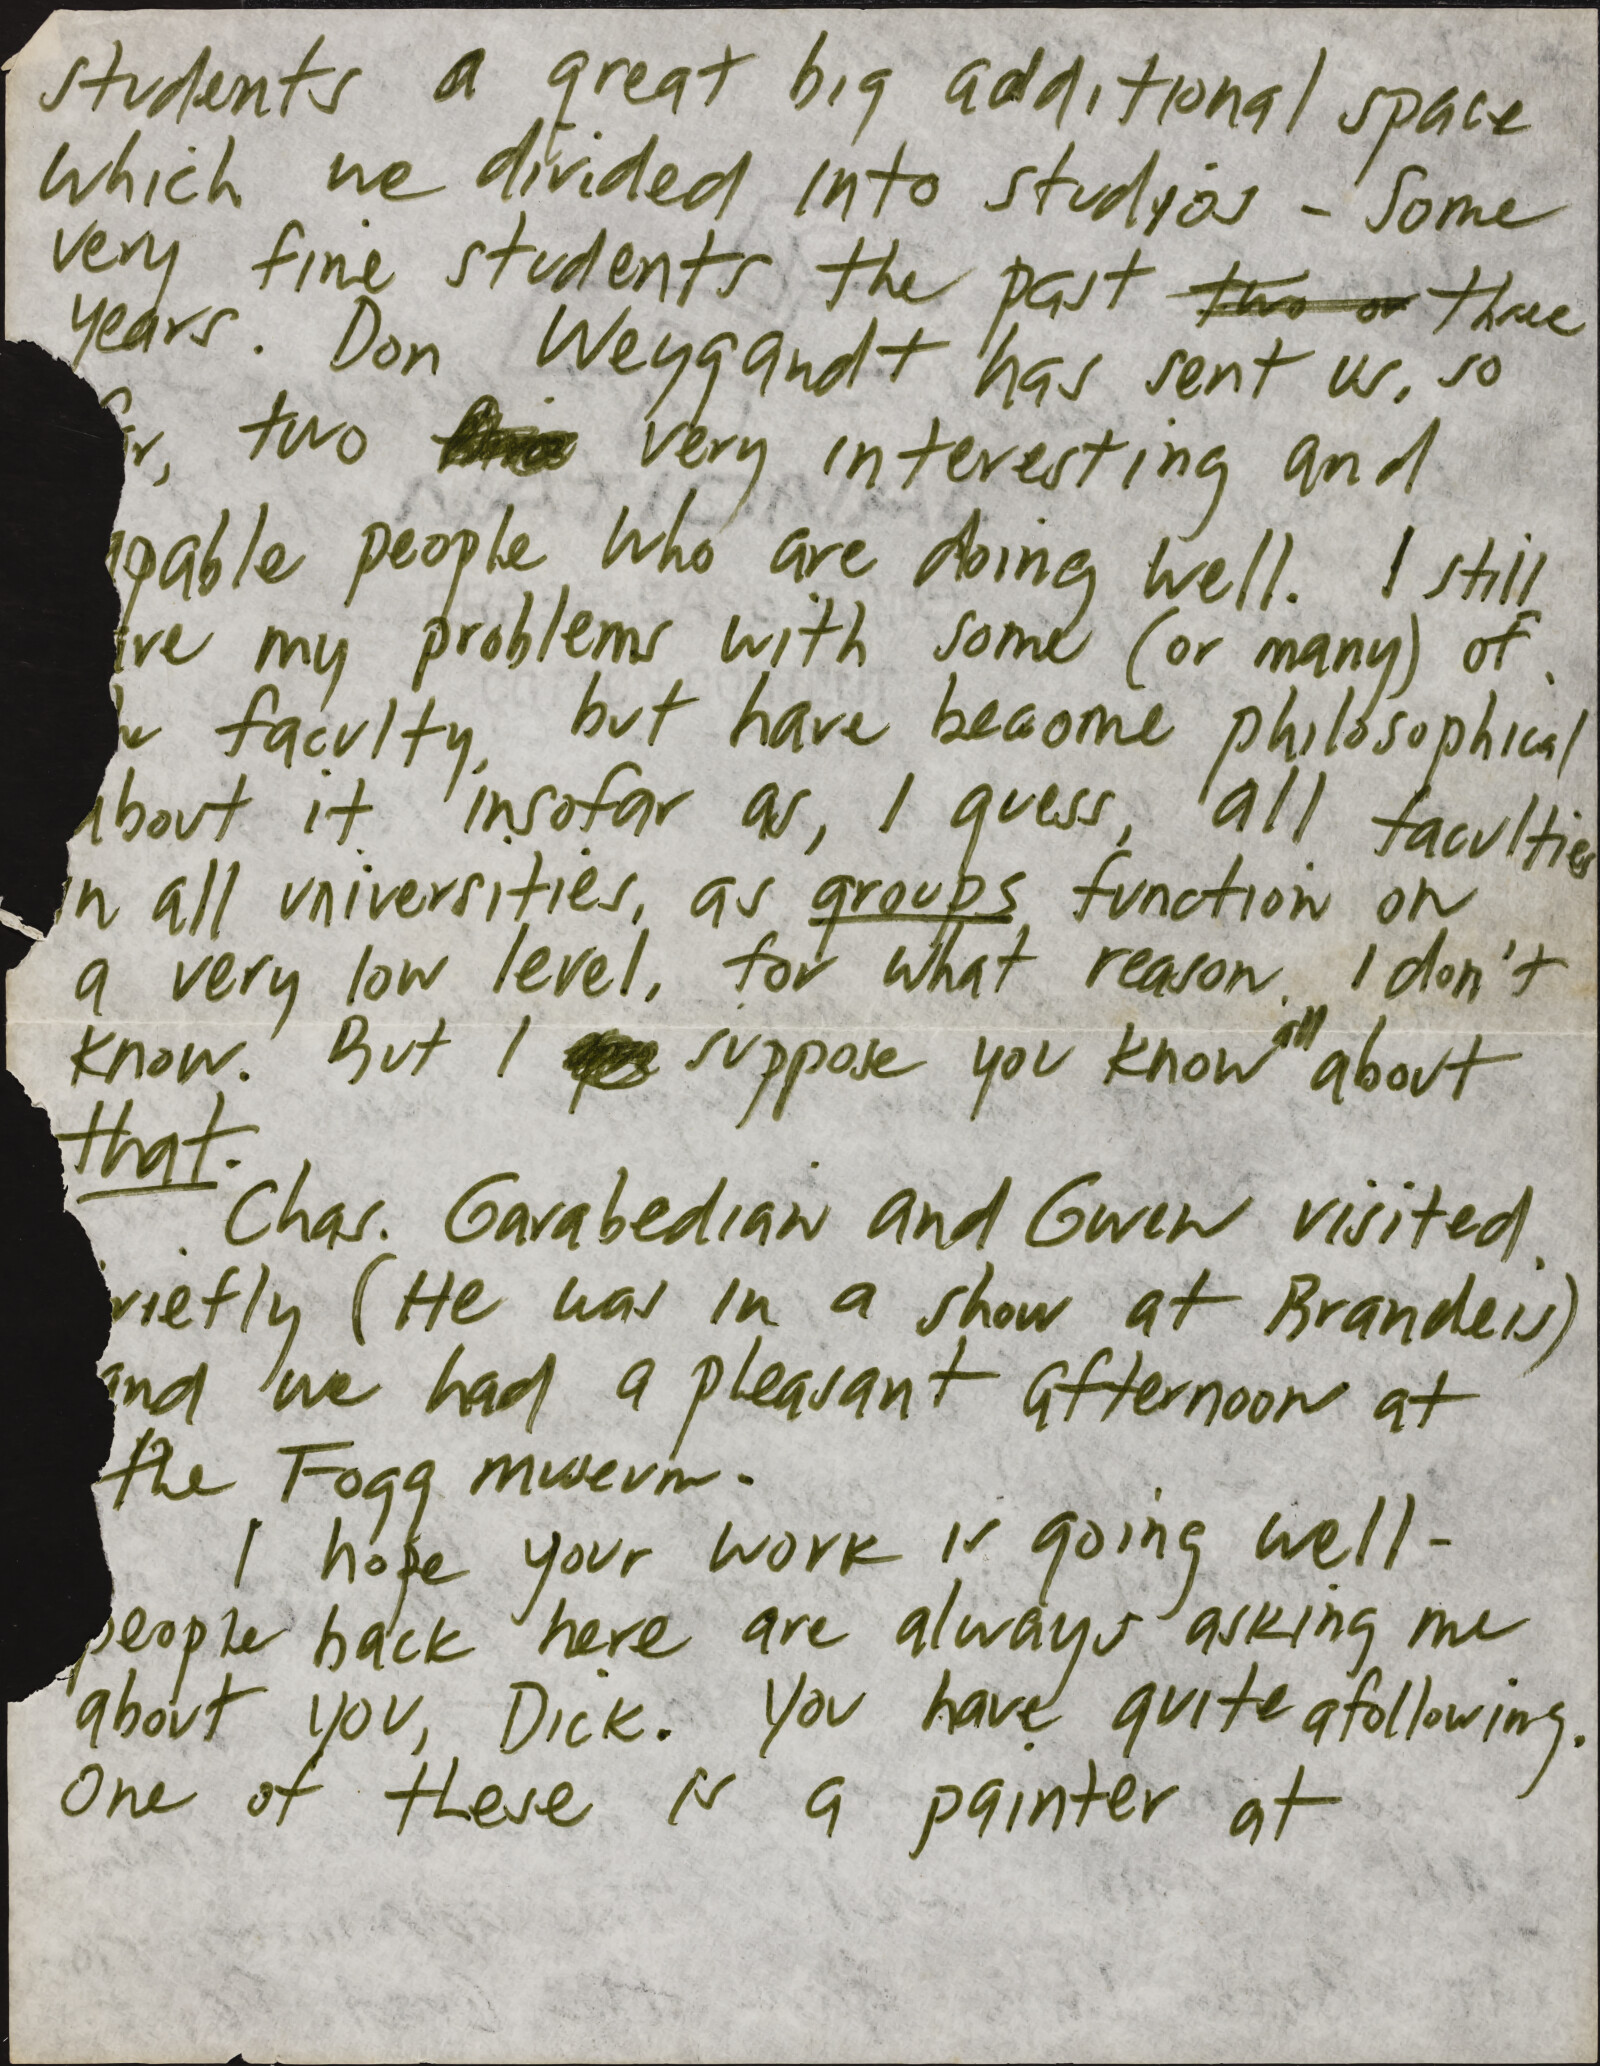 students a great big additional space
which we divided into studios - Some
very fine students the past two or three
years. Don Weygandt has sent us, so
r, two very interesting and
pable people who are doing well. I still
ve my problems with some (or many) of
faculty, but have become philosophical
about it insofar as, I guess, all faculties
in all universities, as groups function on
a very low level, for what reason, I don't
know. But I suppose you know all about
that.
Chas. Garabedian and Gwen visited
riefly (He was in a show at Brandeis)
and we had a pleasant afternoon at
the Fogg museum.
I hope your work is going well -
people back here are always asking me
about you, Dick. You have quite a following.
One of these is a painter at